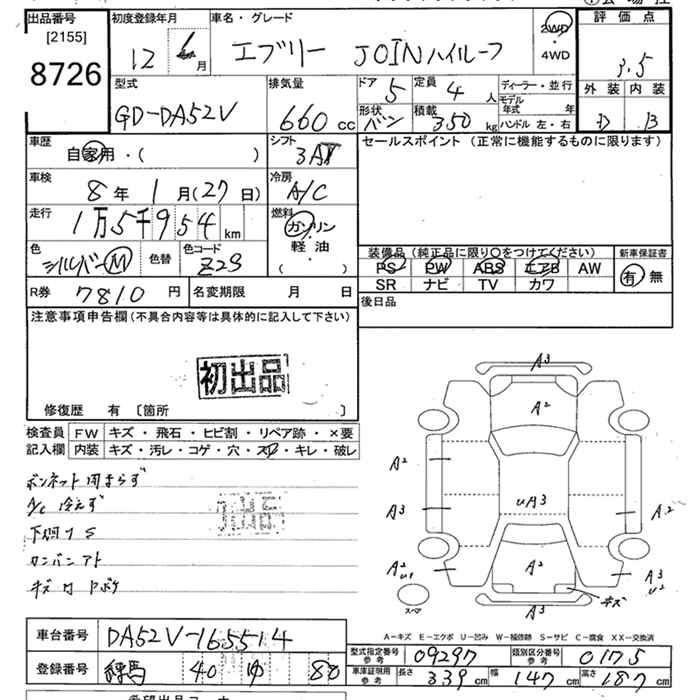 出品番号
[2155]
8726
初度登録年月
12 6 月
車名・グレード
エブリー JOINハイルーフ
2WD
・
4WD
評価点
3.5
外装 内装
D B
型式
GD-DA52V
排気量
660 cc
ドア
5
形状
バン
定員
4 人
積載
350 kg
ディーラー・並行
モデル年式 年
ハンドル 左・右
車歴
自家用・( )
シフト
3AT
車検
8 年 1 月 (27 日)
冷房
A/C
走行
1万5千954 km
燃料
ガソリン
・
軽油
( )
色
シルバーM
色替
色コード
Z2S
セールスポイント (正常に機能するものに限ります)
装備品 (純正品に限り○をつけてください)
PS PW ABS エアB AW
SR ナビ TV カワ
新車保証書
有 無
R券
7810 円
名変期限 月 日
後日品
注意事項申告欄 (不具合内容等は具体的に記入して下さい)
初出品
修復歴 有 〔箇所 〕
検査員記入欄
FW キズ・飛石・ヒビ割・リペア跡・×要
内装 キズ・汚レ・コゲ・穴・スレ・キレ・破レ
ボンネット閉まらず
A/C 冷えず
下廻りS
カンバンアト
A3
A2
A2
uA3
A3
A2
A2
u1
A2
A3
u2
A3
キズ
スペア
A－キズ E－エクボ U－凹み W－補修跡 S－サビ C－腐食 XX－交換済
車台番号
DA52V-165514
登録番号
練馬 40 ゆ 80
型式指定番号
参考
09297
類別区分番号
参考
0175
車庫証明用
参考
長さ 339 cm 幅 147 cm 高さ 187 cm